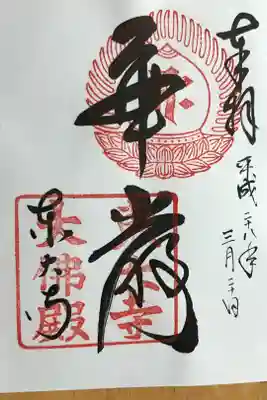 奉拝
平成二八年
三月二十日
華嚴
東大寺
東大寺
大佛殿